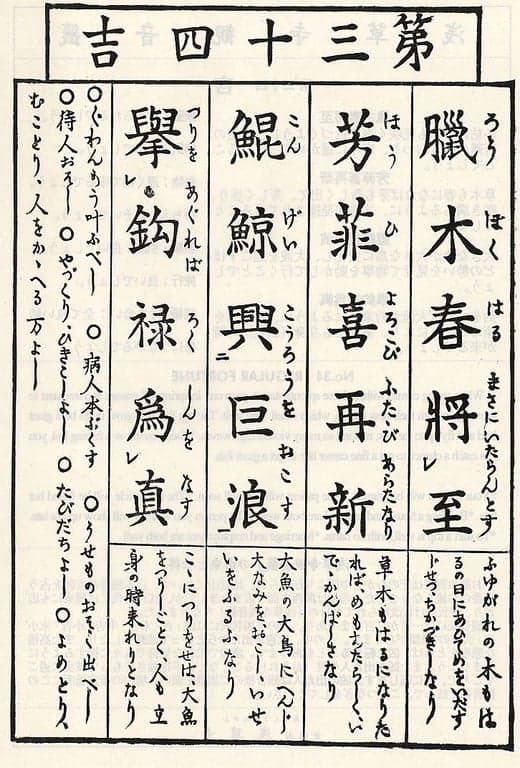 第三十四吉
臘木春將至
ろう ぼく はる まさにいたらんとす
ふゆがれの木もは
るの日にあひめをいだす
じせつちかづきしなり
芳菲喜再新
ほう ひ よろこび ふたゝびあらたなり
草木もはるになりた
れば、めもえたらしくい
でゝかんばしきなり
鯤鯨興ニ巨浪
こん げい こうろうを おこす
大魚の大鳥にへんじ
大なみを、おこしいせ
いをふるふなり
擧レ鈎禄爲レ真
つりを あぐれば ろく しんを なす
こゝにつりをせば、大魚
をつりしごとく、人も立
身の時来れりとなり
〇くわんもう叶ふべし 〇病人本ぶくす 〇うせものおそく出べし
〇待人おそし〇やづくり、ひきこしよし〇たびだちよし〇よめとり、
むことり、人をかゝへる万よし